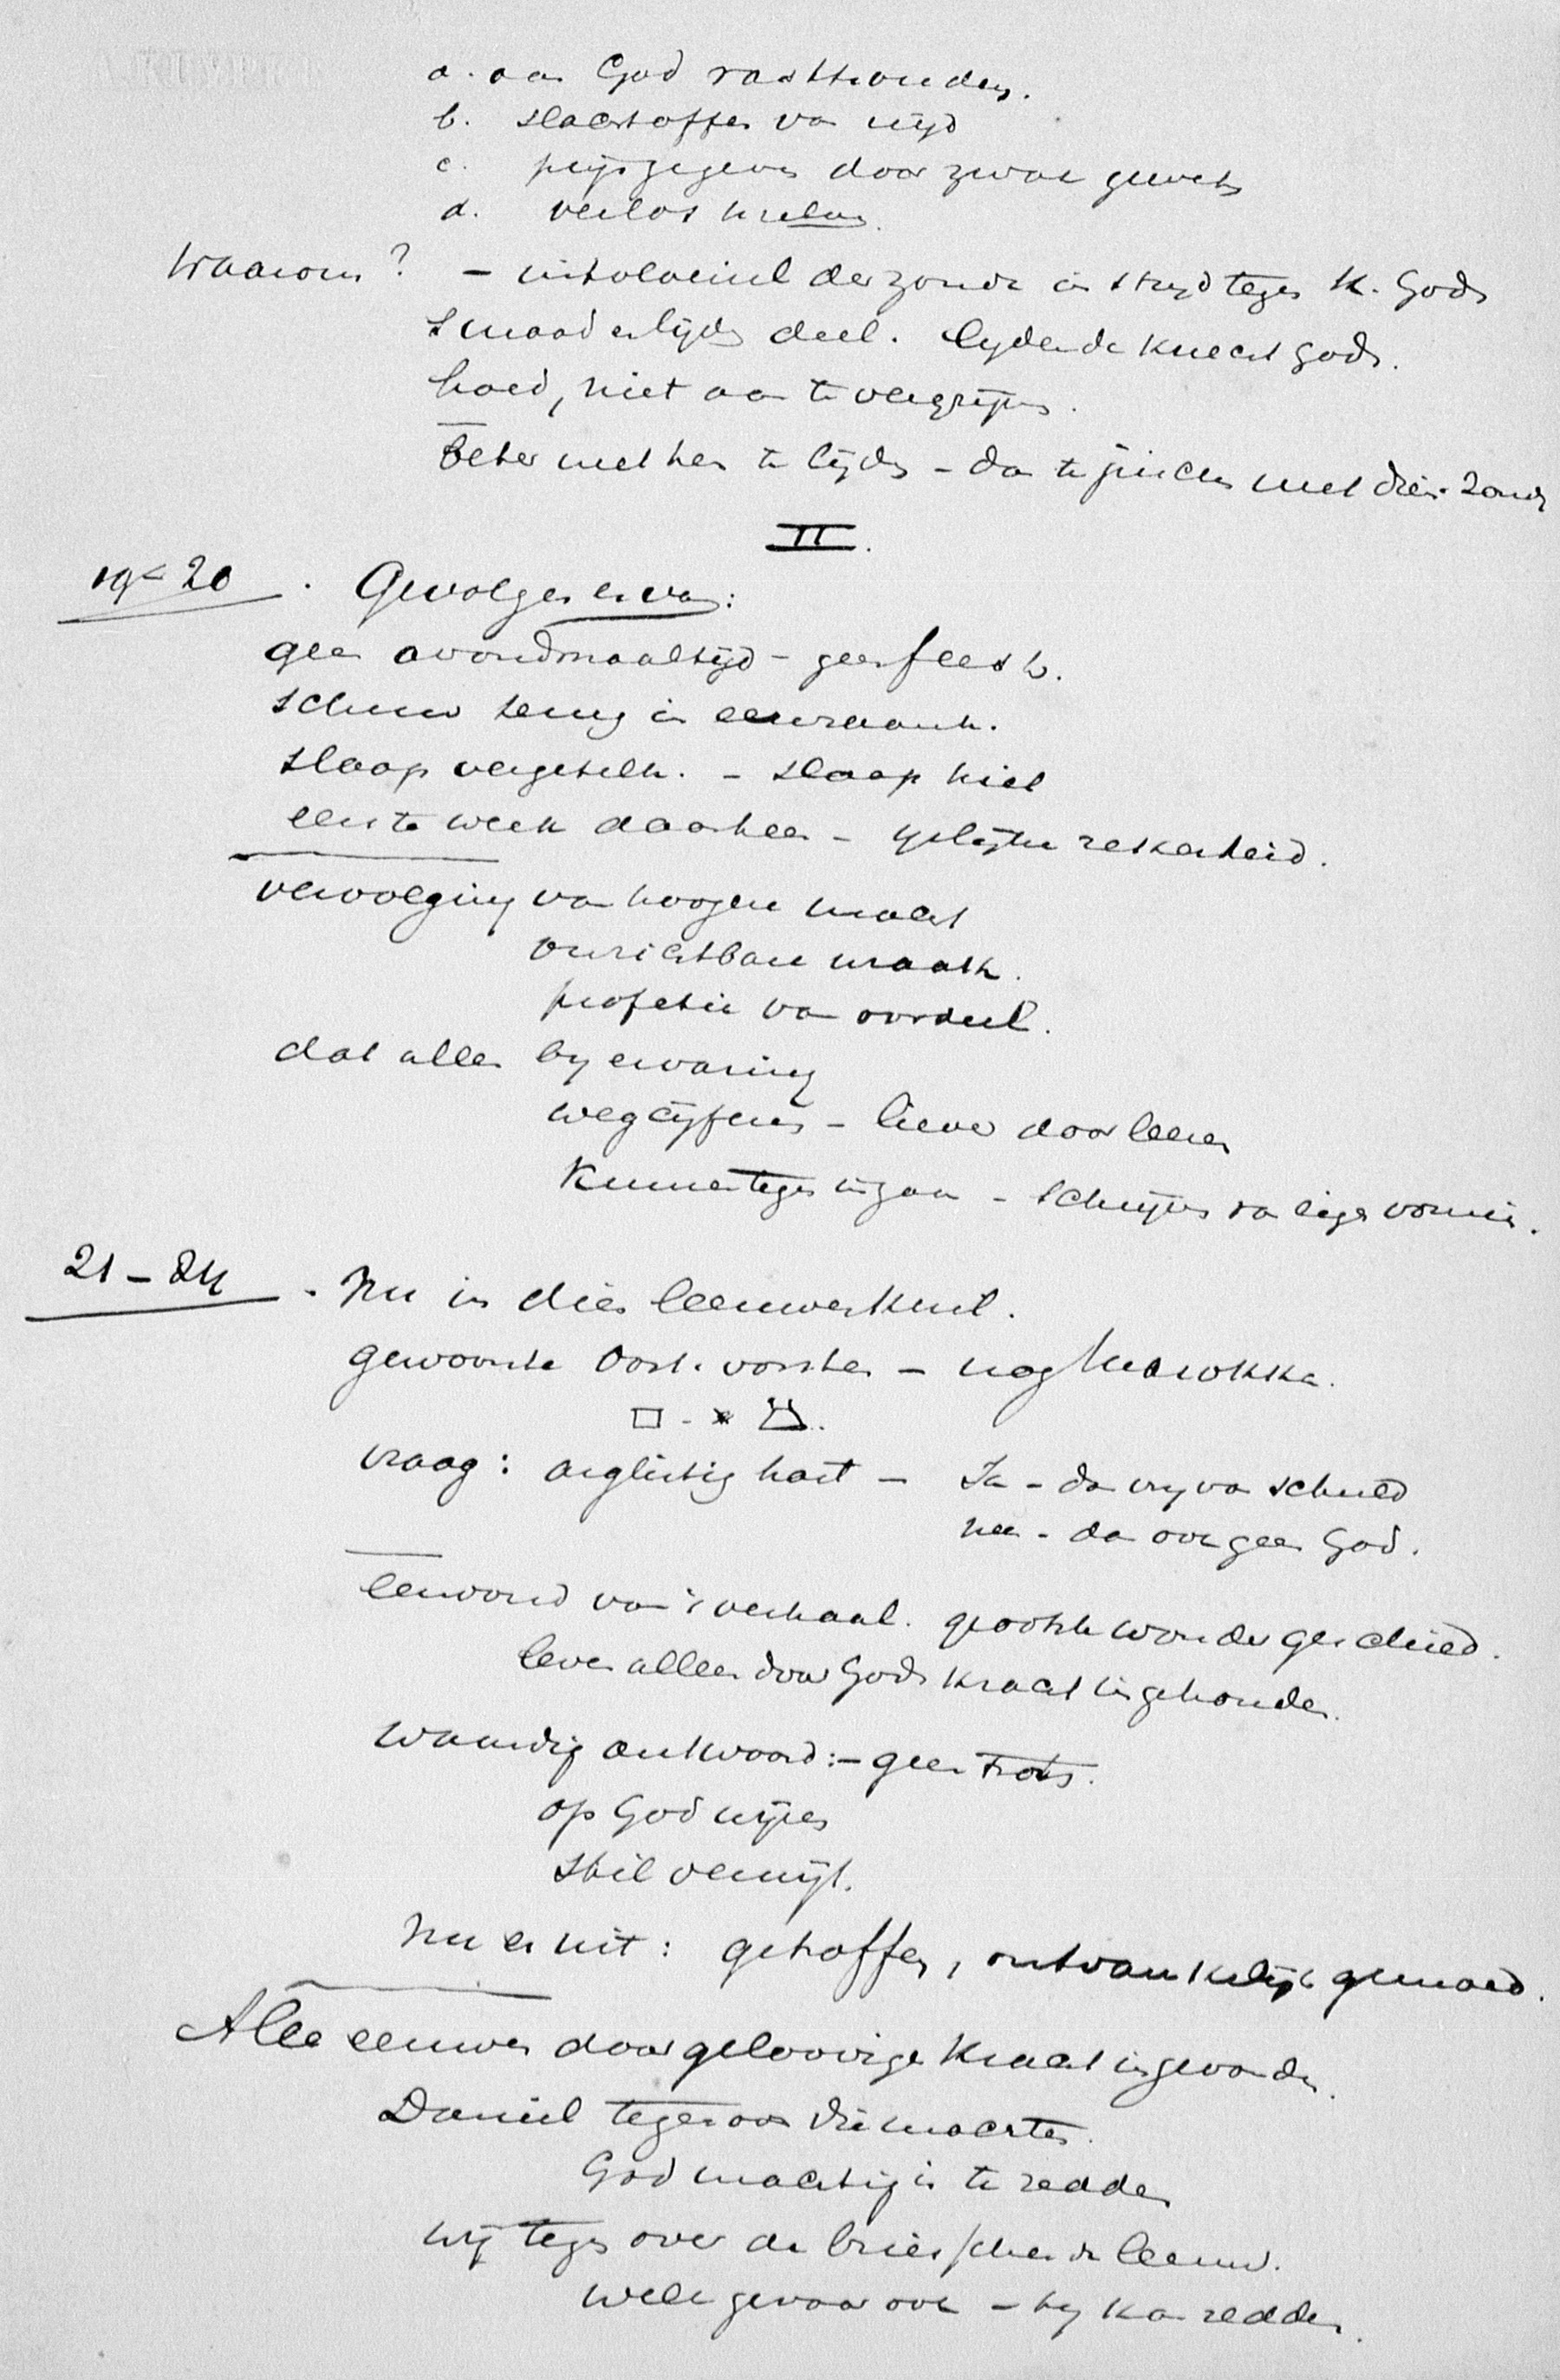 a. aan God vasthouden.
b. slachtoffer van nijd
c. prijsgegeven door zwak gewets
d. verlos
Waarom? - uitvloeisel der zonde in strijd tegen K. Gods
smaad en lijden deel. lydende Knecht Gods.
hoed, niet aan te vergrijpen.
Beter met hen te lijden - dan te juichen met drie zond
II.
19-20. Gevolgen ervan:
geen avondmaaltijd - geen feest.
schuw terug in eenzaamh.
slaap vergeselt. - slaap niet
eerste week daarheen - gelijke zekerheid.
vervolging van hoogere macht
onzichtbare wraak.
profetie van oordeel.
dat alles by ervaring
wegcijferen - liever door leeren
Kunnen tegen ingaan - schrijven van eigen vonnis.
21-24. Nu in dien leeuwenkuil.
gewoonte Oost. vorsten - nog Marokka.
vraag: arglistig hart - Ja - dan vry van schuld
nee - dan ook geen God.
eenvoud van 't verhaal. grootste wonder geschied.
leven alleen door Gods kracht ingehouden.
Waardig antwoord: - geen trots.
op God wijzen
stil verwijt.
Nu er uit: getroffen, ontvankelijk gemoed.
Alle eeuwen door geloovige Kracht in gevonden.
Daniel tegenover die machten.
God machtig is te redden
wij tegen over de brieschende leeuw.
welk gevaar ook - hy kan redden.